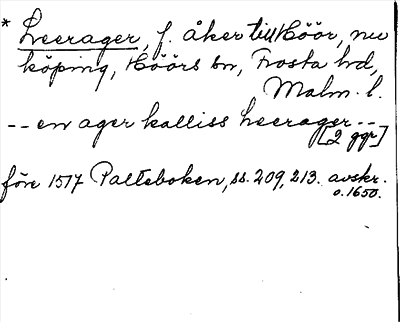 * Leerager, f. åker till Höör, nu
köping, Höörs sn, Frosta hd,
Malm. l.
-- en ager kalliss Leerager --
[2 ggr]
före 1517 Palteboken, ss. 209, 213. avskr.
o. 1650.